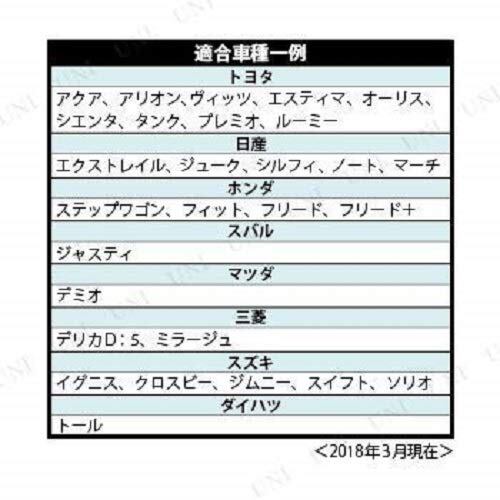 適合車種一例
トヨタ
アクア、アリオン、ヴィッツ、エスティマ、オーリス、
シエンタ、タンク、プレミオ、ルーミー
日産
エクストレイル、ジューク、シルフィ、ノート、マーチ
ホンダ
ステップワゴン、フィット、フリード、フリード＋
スバル
ジャスティ
マツダ
デミオ
三菱
デリカD：5、ミラージュ
スズキ
イグニス、クロスビー、ジムニー、スイフト、ソリオ
ダイハツ
トール
＜2018年3月現在＞